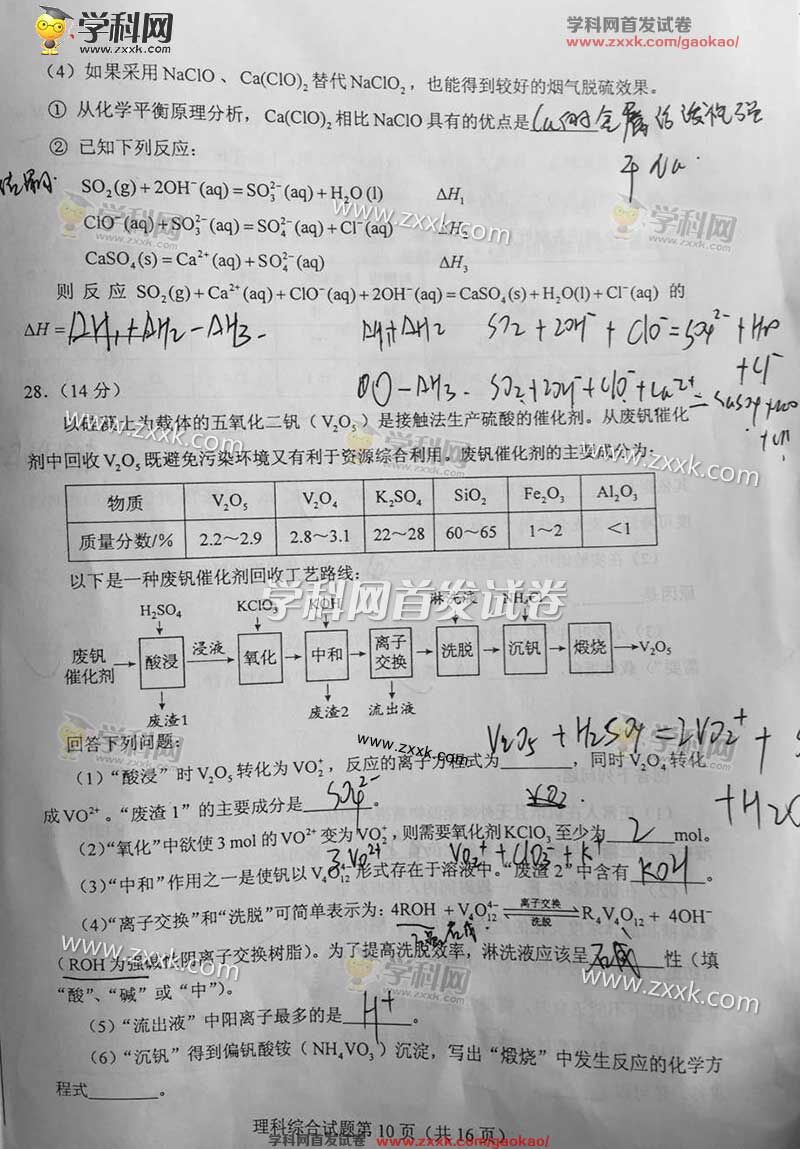 学科网
www.zxxk.com
学科网首发试卷
www.zxxk.com/gaokao/
(4) 如果采用NaClO、Ca(ClO)₂替代NaClO₂，也能得到较好的烟气脱硫效果。
① 从化学平衡原理分析，Ca(ClO)₂相比NaClO具有的优点是
② 已知下列反应：
于Na.
SO₂(g)+2OH⁻(aq)=SO₃²⁻(aq)+H₂O(l) ΔH₁
ClO⁻(aq)+SO₃²⁻(aq)=SO₄²⁻(aq)+Cl⁻(aq) ΔH₂
CaSO₄(s)=Ca²⁺(aq)+SO₄²⁻(aq) ΔH₃
则反应 SO₂(g)+Ca²⁺(aq)+ClO⁻(aq)+2OH⁻(aq)=CaSO₄(s)+H₂O(l)+Cl⁻(aq) 的
ΔH=ΔH₁+ΔH₂-ΔH₃. ΔH₁+ΔH₂ SO₂+2OH⁻+ClO⁻=SO₄²⁻+H₂O
+Cl⁻
28．（14分）
-ΔH₃. SO₂+2OH⁻+ClO⁻+Ca²⁺
以硅藻土为载体的五氧化二钒（V₂O₅）是接触法生产硫酸的催化剂。从废钒催化
剂中回收V₂O₅既避免污染环境又有利于资源综合利用。废钒催化剂的主要成分为：
物质 V₂O₅ V₂O₄ K₂SO₄ SiO₂ Fe₂O₃ Al₂O₃
质量分数/% 2.2～2.9 2.8～3.1 22～28 60～65 1～2 ＜1
以下是一种废钒催化剂回收工艺路线：
学科网首发试卷
H₂SO₄ KClO₃ KOH 淋洗液 NH₄Cl
废钒催化剂 酸浸 浸液 氧化 中和 离子交换 洗脱 沉钒 煅烧 V₂O₅
废渣1 废渣2 流出液
V₂O₅+H₂SO₄=2VO₂⁺+
回答下列问题：
(1)“酸浸”时V₂O₅转化为VO₂⁺，反应的离子方程式为________，同时V₂O₄转化
成VO²⁺。“废渣1”的主要成分是SO₄²⁻。
+H₂O
(2)“氧化”中欲使3 mol的VO²⁺变为VO₂⁺，则需要氧化剂KClO₃至少为2 mol。
3VO²⁺ VO₂⁺+ClO₃⁻+K⁺
(3)“中和”作用之一是使钒以V₄O₁₂⁴⁻形式存在于溶液中。“废渣2”中含有KOH。
(4)“离子交换”和“洗脱”可简单表示为：4ROH+V₄O₁₂⁴⁻ ⇌（离子交换/洗脱） R₄V₄O₁₂+4OH⁻
（ROH为强碱性阴离子交换树脂）。为了提高洗脱效率，淋洗液应该呈 性（填
“酸”、“碱”或“中”）。
(5)“流出液”中阳离子最多的是H⁺。
(6)“沉钒”得到偏钒酸铵（NH₄VO₃）沉淀，写出“煅烧”中发生反应的化学方
程式________。
理科综合试题第10页（共16页）
学科网首发试卷 www.zxxk.com/gaokao/